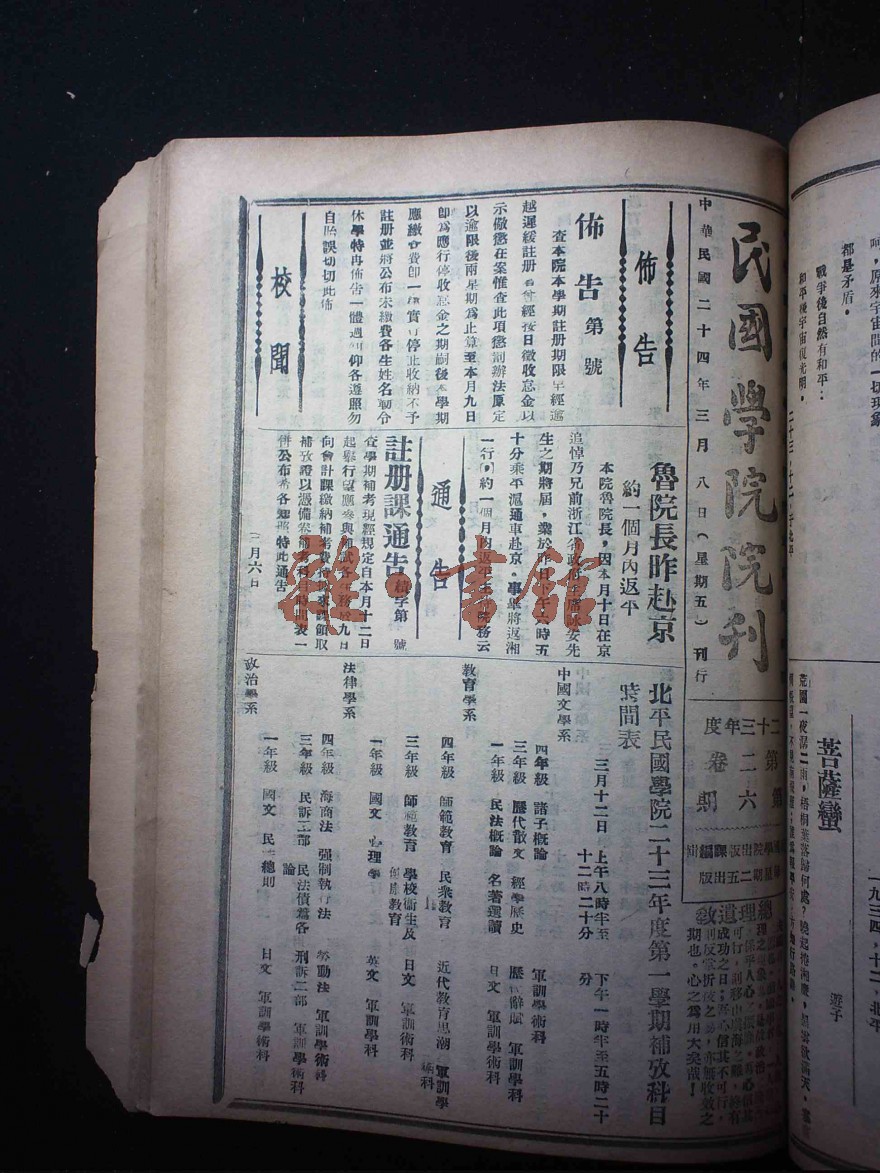 民國學院院刊
中華民國二十四年三月八日(星期五)刊行
二十三年度
第二卷
第六期
總理遺教
佈告
佈告 第 號
查本院本學期註冊期限早經逾
越遲緩註冊者曾經按日徵收怠金以
示儆懲在案惟查此項懲罰辦法原定
以逾限後兩星期爲止算至本月九日
卽爲應行停收怠金之期嗣後本學期
應繳 費卽一 實行停止收納不予
註冊並將公布未繳費各生姓名勒令
休學特再佈告一體週知仰各遵照勿
自貽誤切切此佈
校聞
魯院長昨赴京
約一個月內返平
本院魯院長,因本月十日在京
追悼乃兄前浙江省政府主席詠安先
生之期將屆,業於昨日下午六時五
十分乘平滬通車赴京。事畢將返湘
一行,約一個月內返平主持院務云
通告
註冊課通告 字第 號
查學期補考現經規定自本月十二日
起舉行望應參與補試各生務於九日
向會計課繳納補考費 來課領取
補考證以憑備 補考科目時間表一
併公布希各知照特此通告
三月六日
北平民國學院二十三年度第一學期補考科目
時間表
三月十二日 上午八時半至十二時二十分 下午一時半至五時二十分
中國文學系
四年級 諸子概論 軍訓學術科
三年級 歷代散文 經學歷史 歷代辭賦 軍訓學術科
一年級 民法概論 名著選讀 日文 軍訓學術科
教育學系
四年級 師範教育 民衆教育 近代教育思潮 軍訓學術科
三年級 師範教育 學校衛生及健康教育 日文 軍訓學術科
一年級 國文 心理學 英文 軍訓學術科
法律學系
四年級 海商法 强制執行法 勞動法 軍訓學術科
三年級 民訴二部 民法債篇各論 刑訴二部 軍訓學術科
政治學系
一年級 國文 民法總則 日文 軍訓學術科
都是矛盾。
戰爭後自然有和平:
和平後宇宙復光明。
菩薩蠻
遊子
一九三四,十二,北平
雜·書館